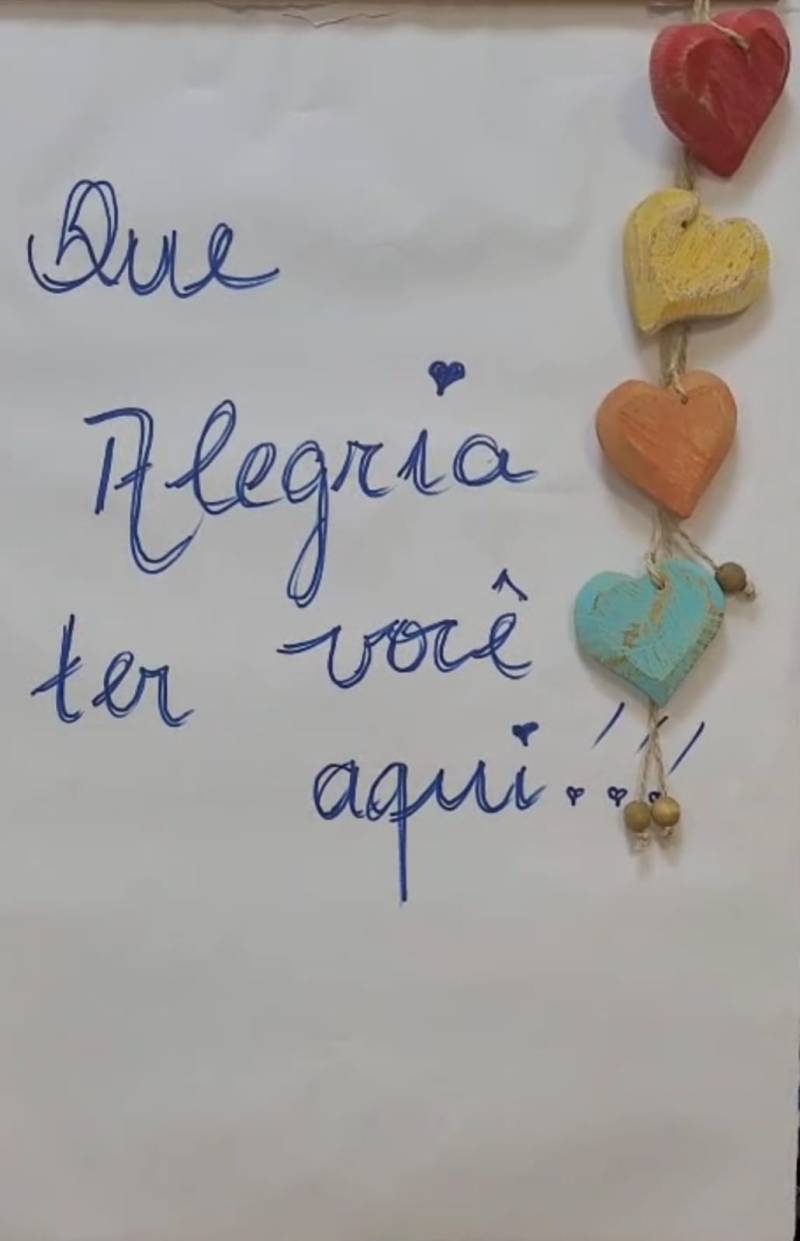 Que
Alegria
ter você
aqui!!!